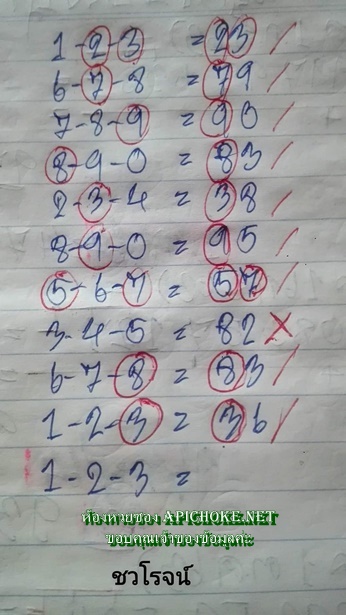 1-2-3 = 23 /
6-7-8 = 79 /
7-8-9 = 90 /
8-9-0 = 83 /
2-3-4 = 38 /
8-9-0 = 95 /
5-6-7 = 57 /
3-4-5 = 82 X
6-7-8 = 83 /
1-2-3 = 36 /
1-2-3 =
ห้องหวยของ APICHOKE.NET
ขอบคุณเจ้าของข้อมูลค่ะ
ชวโรจน์